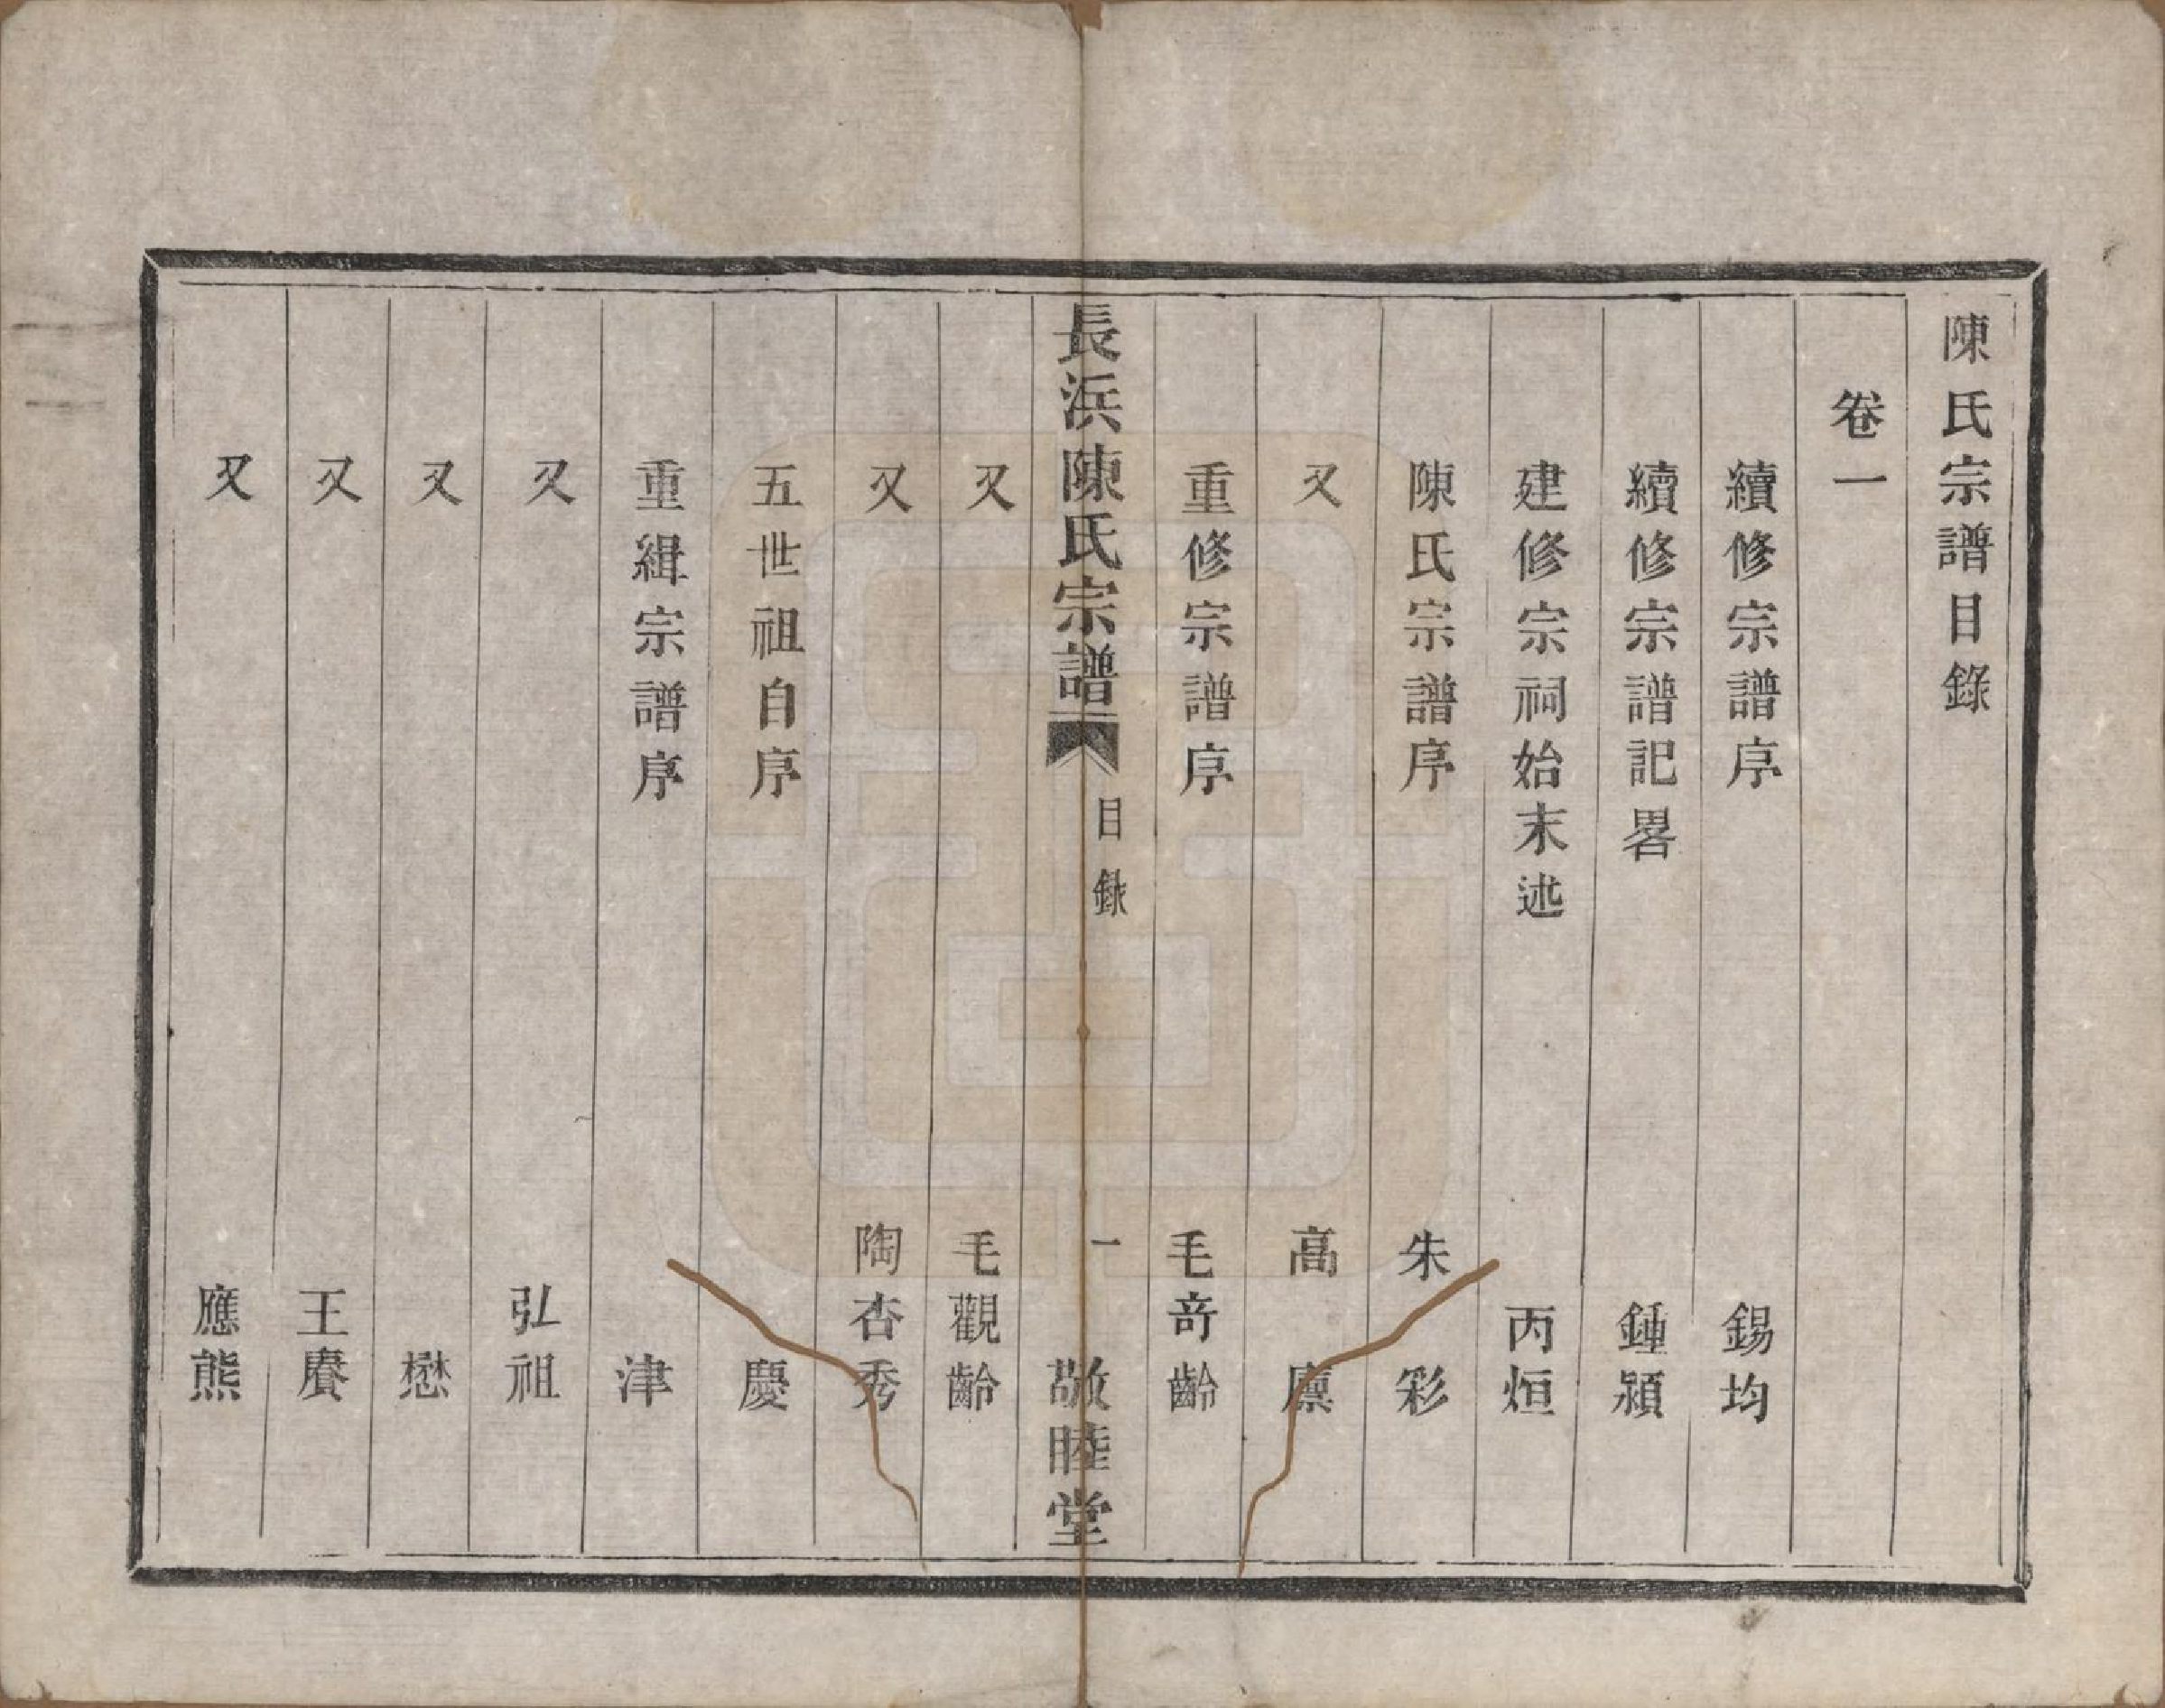 陳氏宗譜目錄
卷一
續修宗譜序 錫均
續修宗譜記畧 鍾潁
建修宗祠始末述 丙烜
陳氏宗譜序 朱彩
又 高廪
重修宗譜序 毛竒齡
長浜陳氏宗譜 目錄 一 敬睦堂
又 毛觀齡
又 陶杏秀
五世祖自序 慶
重緝宗譜序 津
又 弘祖
又 懋
又 王賡
又 應熊